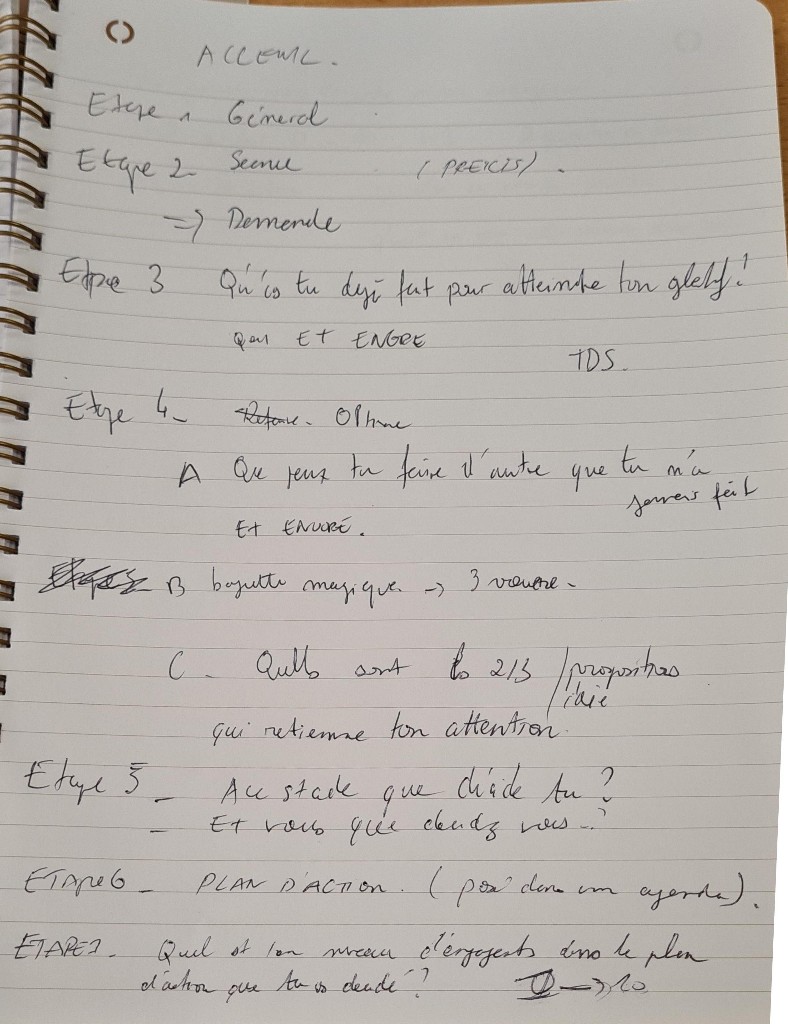 ACCEUIL.
Etape 1 Général
Etape 2 Seance (PRECIS).
=> Demande
Etape 3 Qu'es tu déjà fait pour atteindre ton
ET ENCORE
TDS.
Etape 4 - Option
A Que peux tu faire d'autre que tu n'a
jamais fait
Et ENCORE.
B baguette magique -> 3 voeux -
C - Quells sont les 2/3 / propositions
/ idée
qui retienne ton attention
Etape 5 - A ce stade que décide tu ?
- Et vous que décidez vous ..?
ETAPE 6 - PLAN D'ACTION. (posé dans un agenda).
ETAPE 7 - Quel est ton niveau d'engagements dans le plan
d'action que tu as décidé ? -> 10